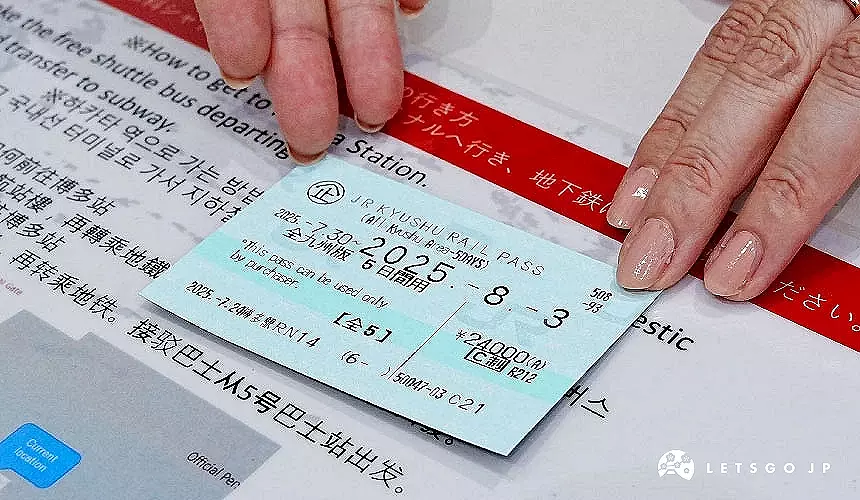 ※How to get to
the free shuttle bus departing
transfer to subway.
a Station.
※하카타 역으로 가는 방법
국내선 터미널로 가서 지하
前往博多站
站樓，再轉乘地鐵
博多站
再转乘地铁。接驳巴士从5号巴士站出发。
の行き方
ナルへ行き、地下鉄
ださい。
estic
버스
企
JR KYUSHU RAIL PASS
(All Kyushu Area-5DAYS)
2025.-7.30～2025.-8.-3
全九州版 5日間用
*This pass can be used only
by purchaser.
508
-93
【全5】
¥24000(A)
C制 R212
2025.-7.24
RN14
(6- )
50047-03 C21
Gate
Current
location
Official
LETSGO JP